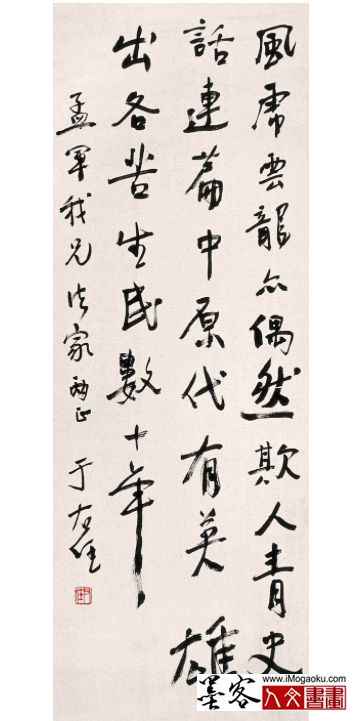 風虎雲龍亦偶然欺人青史
話連篇中原代有英雄
出各苦生民數十年
孟軍我兄法家正 于右任
www.iMogaoku.com
墨客 人文書畫